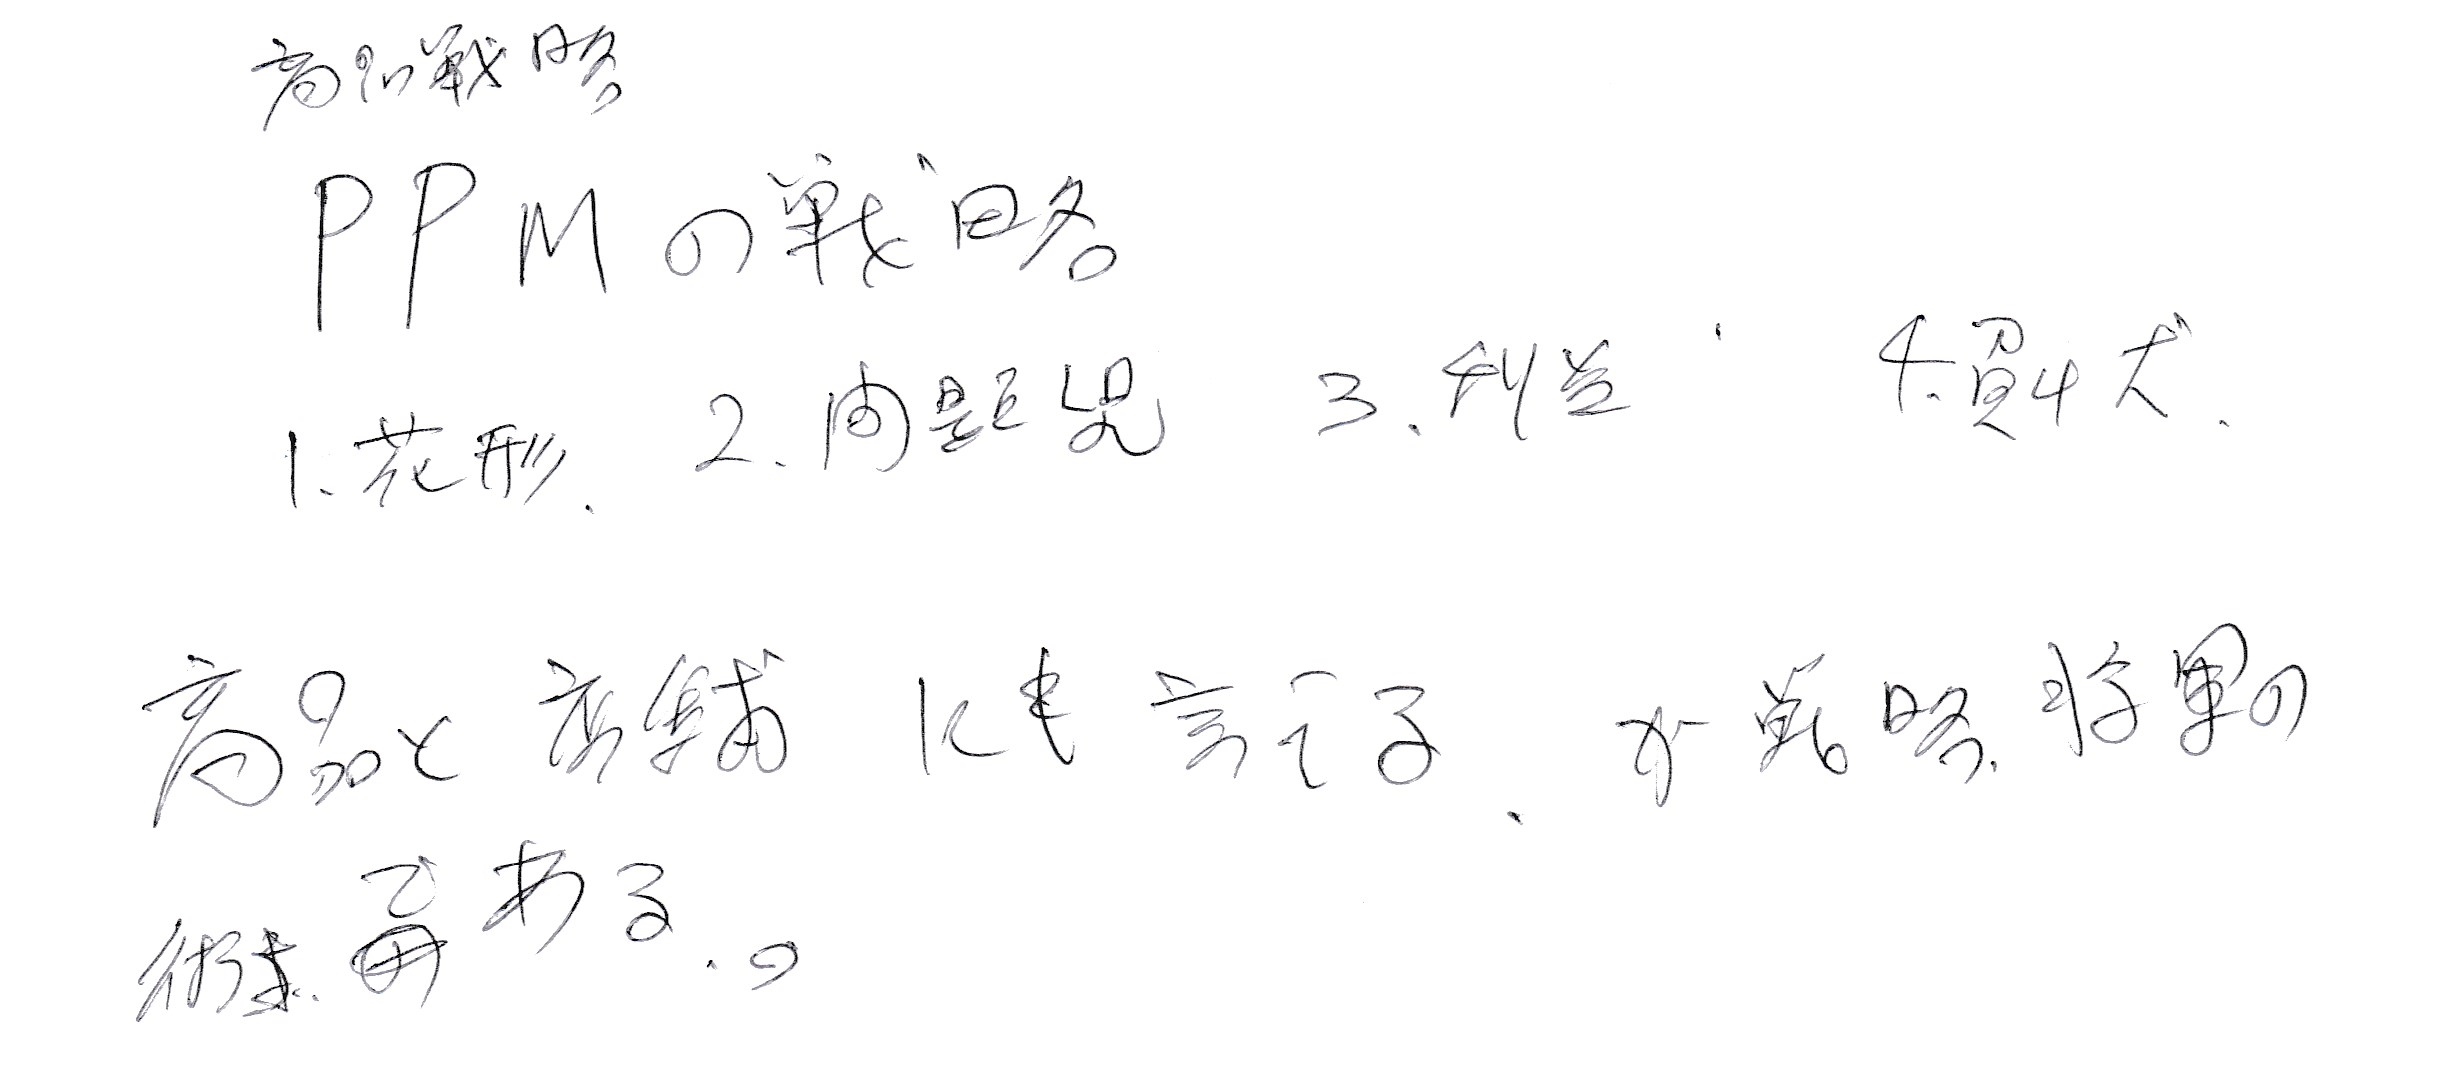 商品戦略
PPMの戦略
1.花形. 2.問題児 3.利益 4.負け犬.
商品と店舗にも言える、が戦略、将軍の
術、である。